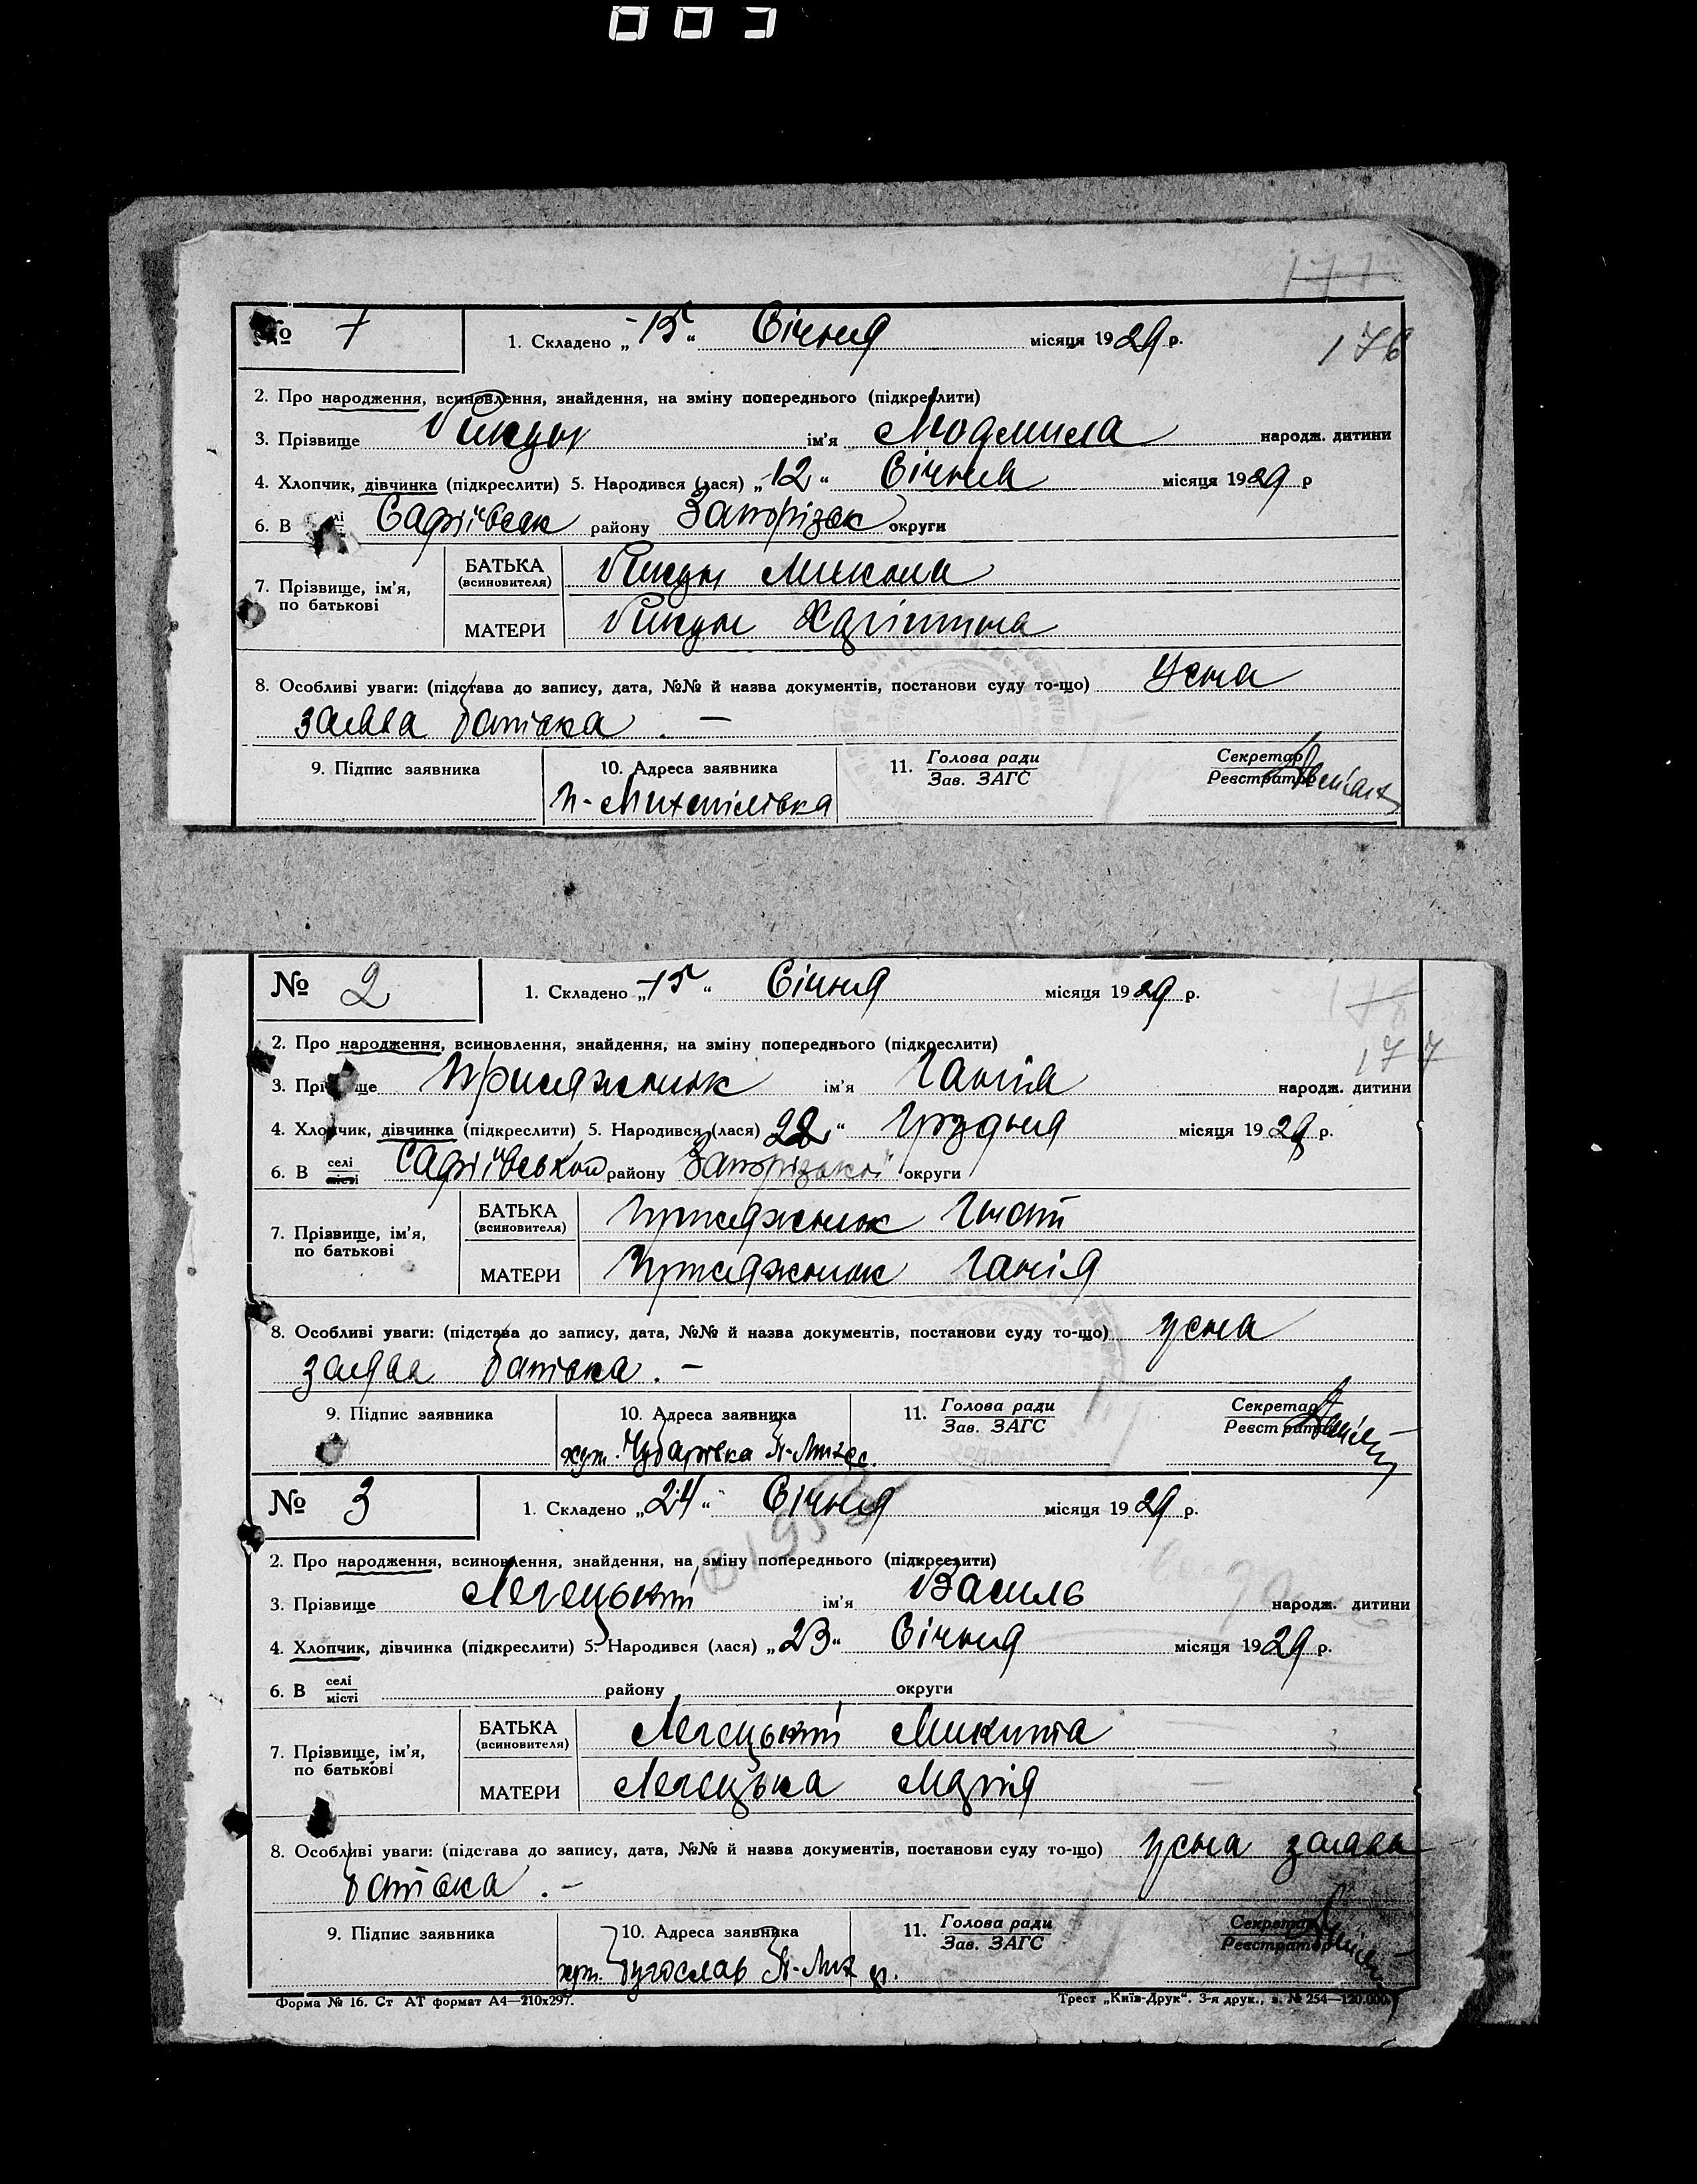 003
177
№ 1
1. Складено „15“ Січня місяця 1929 р.
176
2. Про народження, всиновлення, знайдення, на зміну попереднього (підкреслити)
3. Прізвище ім'я Людмила народж. дитини
4. Хлопчик, дівчинка (підкреслити) 5. Народився (лася) „12“ Січня місяця 1929 р
6. В Софіївськ району Запорізьк округи
7. Прізвище, ім'я, по батькові
БАТЬКА (всиновителя) Микола
МАТЕРИ Христина
8. Особливі уваги: (підстава до запису, дата, №№ й назва документів, постанови суду то-що) Усна
заява батька. —
9. Підпис заявника 10. Адреса заявника 11. Голова ради Зав. ЗАГС Секретар Реєстратор
П-Михайлівка
№ 2
1. Складено „15“ Січня місяця 1929 р.
178
2. Про народження, всиновлення, знайдення, на зміну попереднього (підкреслити)
177
3. Прі ще Присяжнюк ім'я Ганна народж. дитини
4. Хлопчик, дівчинка (підкреслити) 5. Народився (лася) 22“ Грудня місяця 1929 р.
6. В селі місті Софіївського району Запорізької округи
7. Прізвище, ім'я, по батькові
БАТЬКА (всиновителя) Присяжнюк Гнат
МАТЕРИ Присяжнюк Ганна
8. Особливі уваги: (підстава до запису, дата, №№ й назва документів, постанови суду то-що) усна
заява батька. —
9. Підпис заявника 10. Адреса заявника 11. Голова ради Зав. ЗАГС Секретар Реєстратор
хут. Чубарівка П-Михс.
№ 3
1. Складено „24“ Січня місяця 1929 р.
2. Про народження, всиновлення, знайдення, на зміну попереднього (підкреслити)
3. Прізвище Легецький ім'я Василь народж. дитини
4. Хлопчик, дівчинка (підкреслити) 5. Народився (лася) „23“ Січня місяця 1929 р.
6. В селі місті району округи
7. Прізвище, ім'я, по батькові
БАТЬКА (всиновителя) Легецький Микита
МАТЕРИ Легецька Марія
8. Особливі уваги: (підстава до запису, дата, №№ й назва документів, постанови суду то-що) усна заява
батька. —
9. Підпис заявника 10. Адреса заявника 11. Голова ради Зав. ЗАГС Секретар Реєстратор
хут. Бугослав П-Мих
Форма № 16. Ст АТ формат А4—210x297. Трест „Київ-Друк“. 3-я друк., з. № 254—120.000.